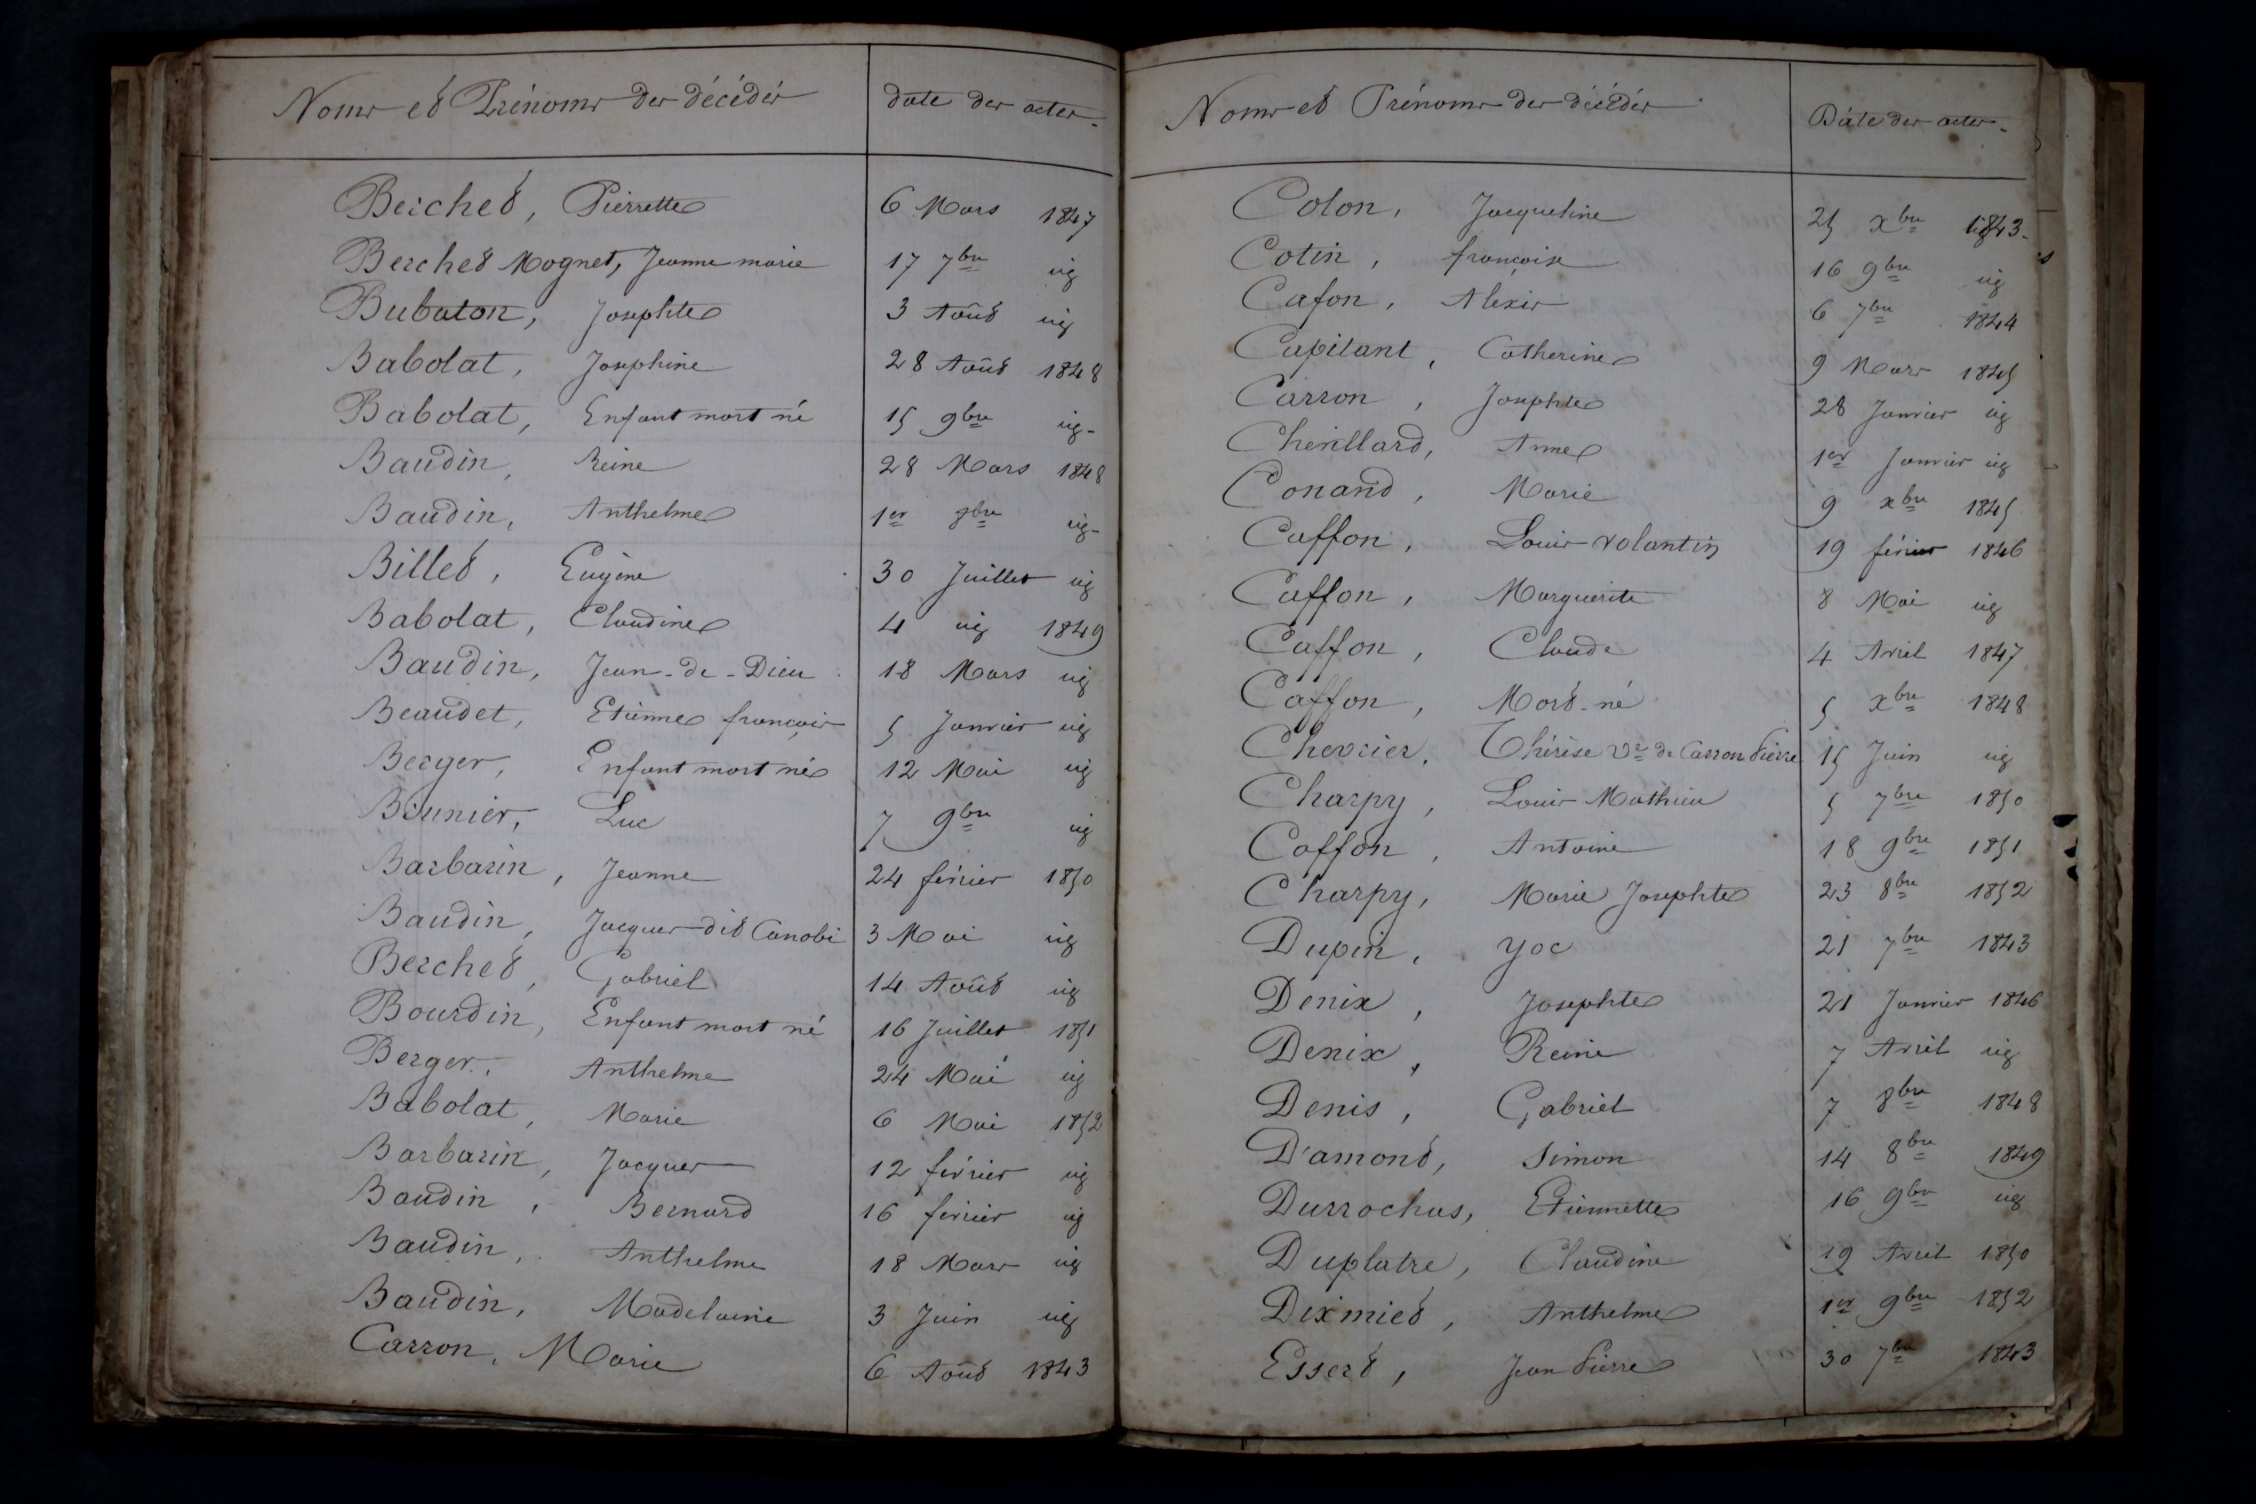 Noms et Prénoms des décédés date des actes.
Berchet, Pierrette 6 Mars 1847
Berchet Mognet, Jeanne marie 17 7bre id
Bubaton, Josephte 3 Août id
Babolat, Josephine 28 Août 1848
Babolat, Enfant mort né 15 9bre id-
Baudin, Reine 28 Mars 1848
Baudin, Anthelme 1er 8bre id-
Billet, Eugène 30 Juillet id
Babolat, Claudine 4 id 1849
Baudin, Jean-de-Dieu 18 Mars id
Beaudet, Etienne françois 5 Janvier id
Berger, Enfant mort né 12 Mai id
Luc 7 9bre id
Barbarin, Jeanne 24 février 1850
Baudin, Jacques dit Canobi 3 Mai id
Berchet, Gabriel 14 Août id
Bourdin, Enfant mort né 16 Juillet 1851
Berger, Anthelme 24 Mai id
Babolat, Marie 6 Mai 1852
Barbarin, Jacques 12 février id
Baudin, Bernard 16 février id
Baudin, Anthelme 18 Mars id
Baudin, Madelaine 3 Juin id
Carron, Marie 6 Août 1843
Noms et Prénoms des décédés Date des actes.
Colon, Jacqueline 25 xbre 1843-
Cotin, françoise 16 9bre id
Cafon, Alexis 6 7bre 1844
Capitant, Catherine 9 Mars 1845
Carron, Josephte 28 Janvier id
Chevillard, Anne 1er Janvier id
Conand, Marie 9 xbre 1845
Caffon, Louis volantin 19 février 1846
Caffon, Marguerite 8 Mai id
Caffon, Claude 4 Avril 1847
Caffon, Mort-né 5 xbre 1848
Chevrier, Thérèse Ve de Carron Pierre 15 Juin id
Charpy, Louis Mathieu 5 7bre 1850
Caffon, Antoine 18 9bre 1851
Charpy, Marie Josephte 23 8bre 1852
Dupin, yoc 21 7bre 1843
Denix, Josephte 21 Janvier 1846
Denix, Reine 7 Avril id
Denis, Gabriel 7 8bre 1848
D'amont, Simon 14 8bre 1849
Durrochas, Etiennette 16 9bre id
Duplatre, Claudine 19 Avril 1850
Diximiet, Anthelme 1er 9bre 1852
Essert, Jean Pierre 30 7bre 1843